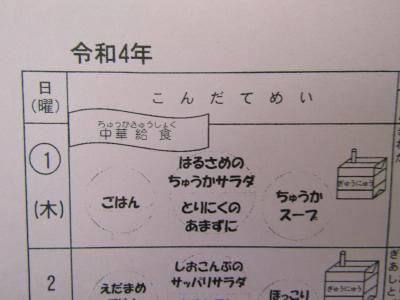 令和4年
日
(曜)
こんだてめい
ちゅうかきゅうしょく
中華給食
1
(木)
ごはん
はるさめの
ちゅうかサラダ
とりにくの
あまずに
ちゅうか
スープ
ぎゅうにゅう
2
えだまめ
しおこんぶの
サッパリサラダ
ほっこり
ぎゅうにゅう